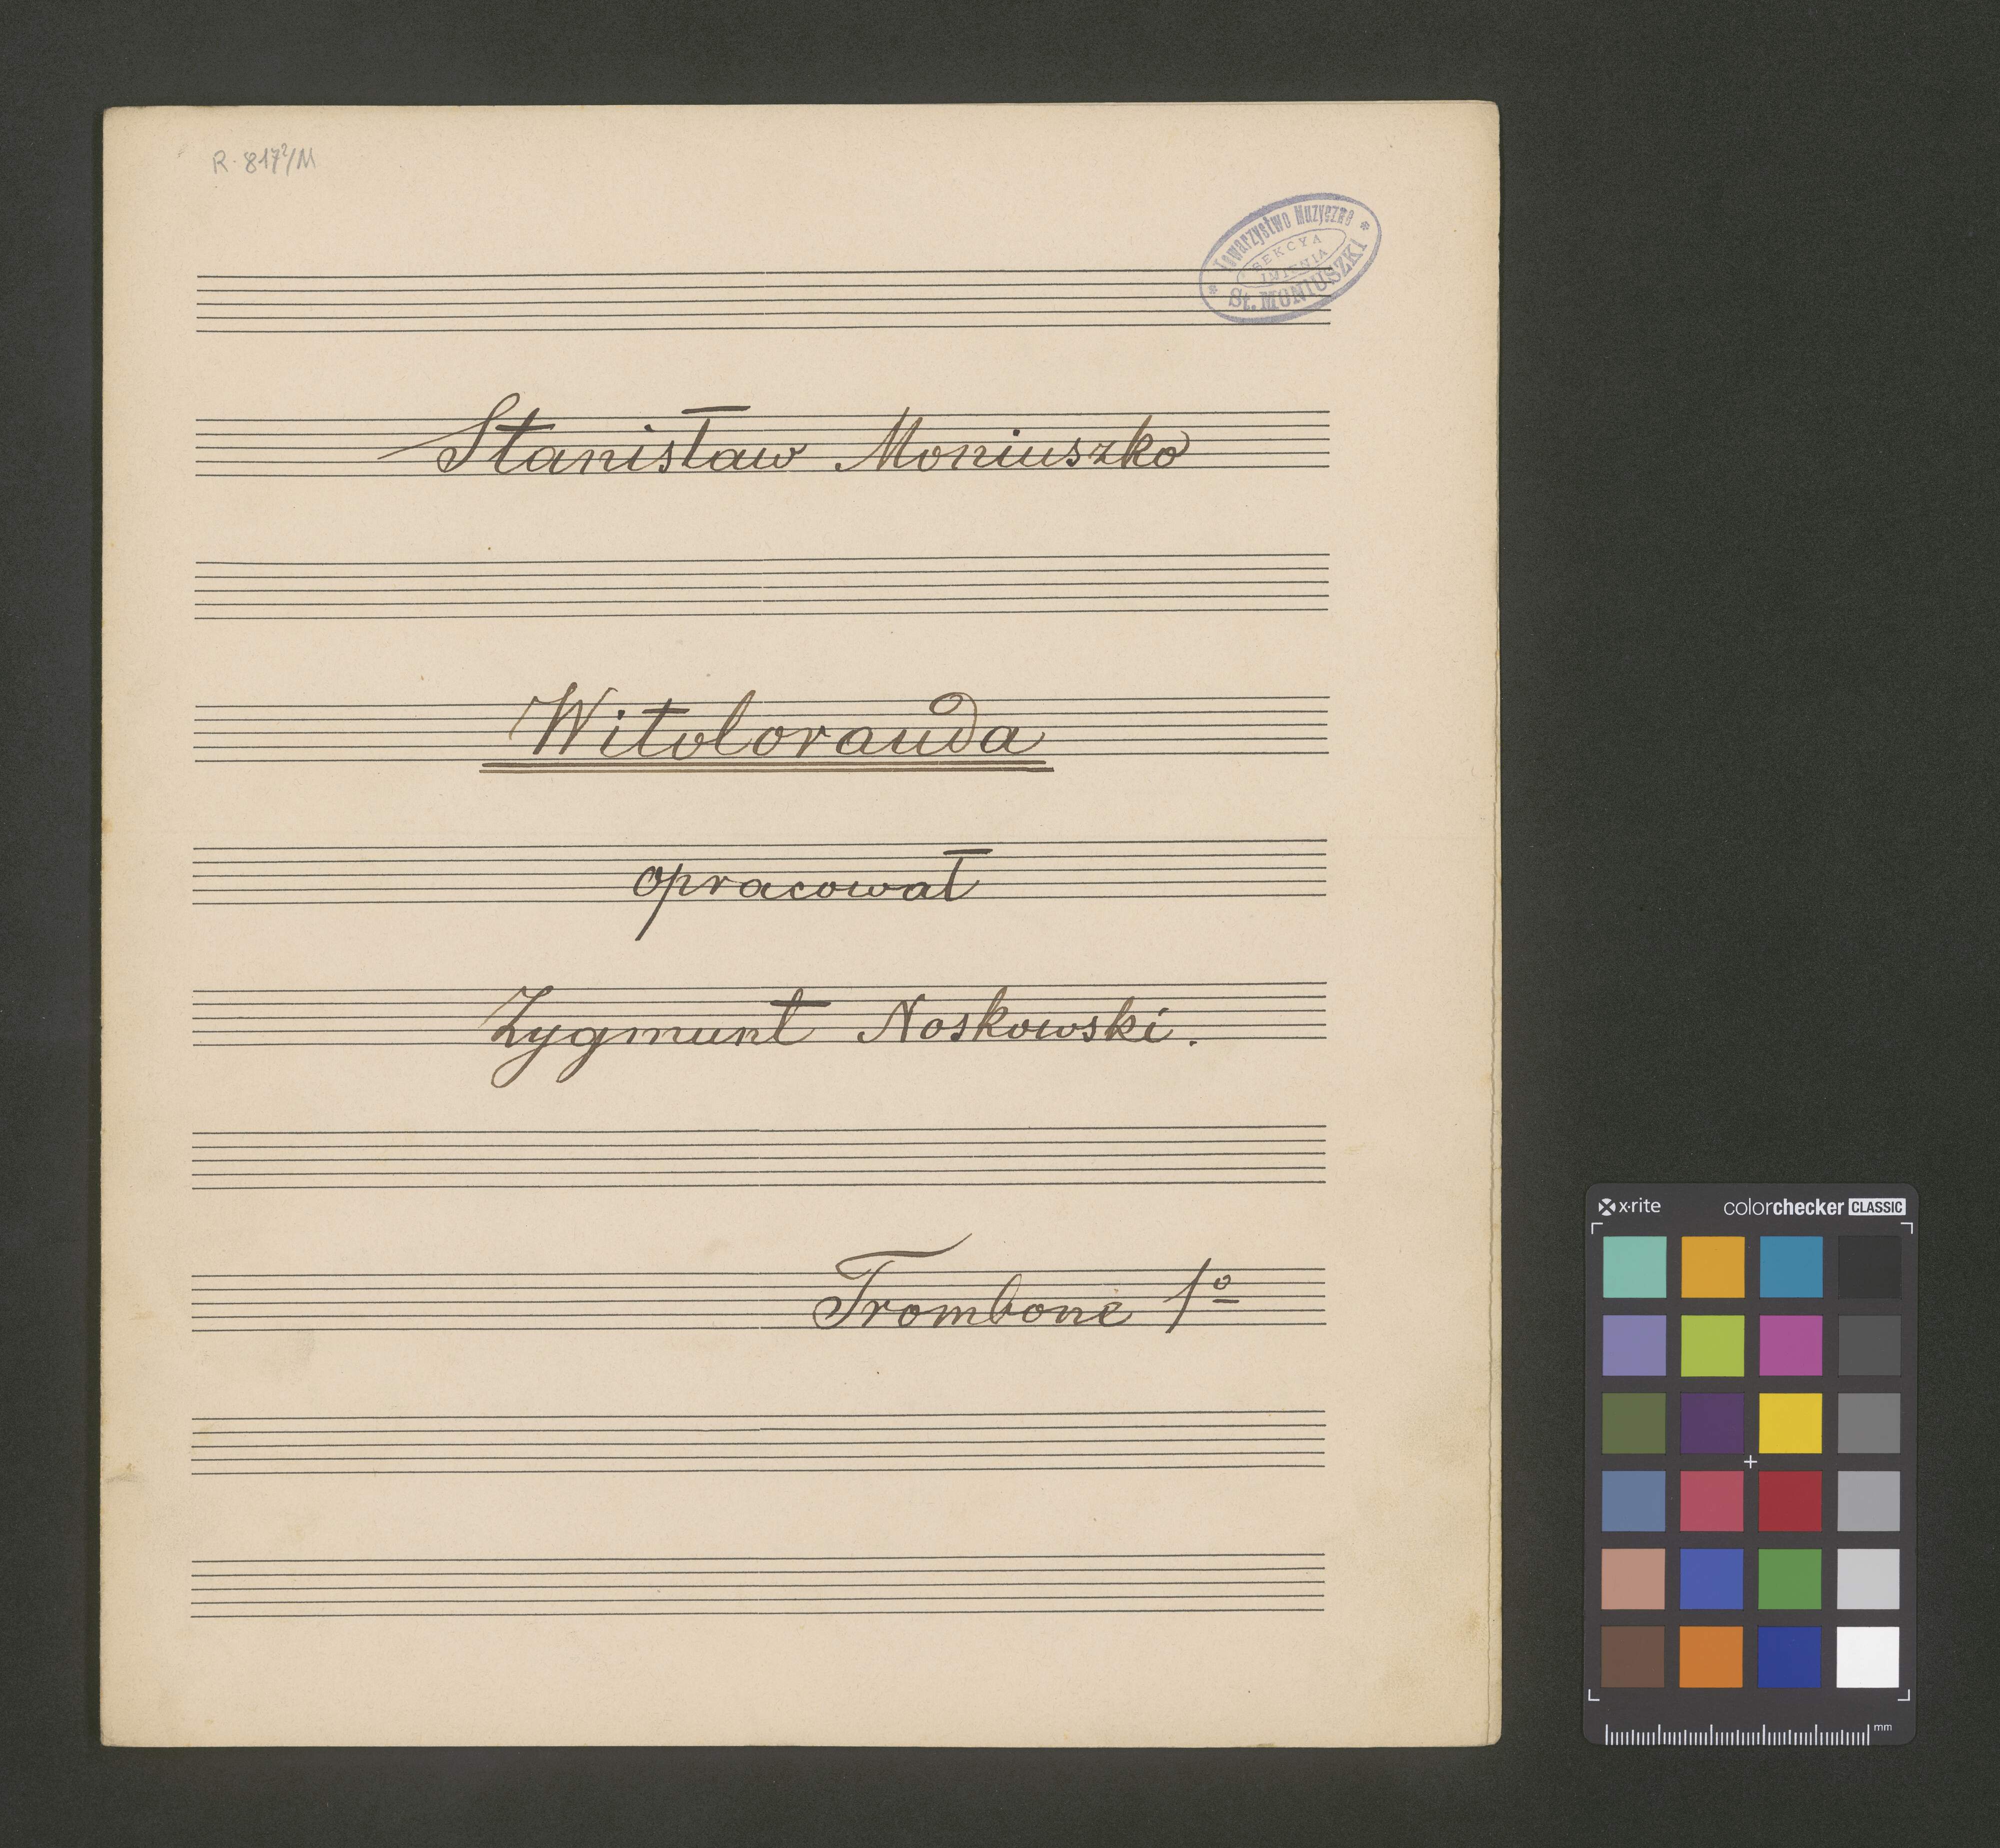 R. 817²/M
Towarzystwo Muzyczne
SEKCYA
IMIENIA
St. MONIUSZKI
Stanisław Moniuszko
Witolorauda
opracował
Zygmunt Noskowski.
Trombone 1º
x·rite
colorchecker CLASSIC
mm